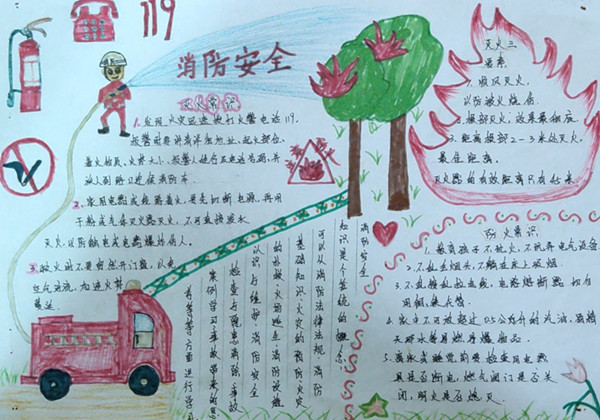 119
消防安全
灭火常识
1.发现火灾迅速拨打火警电话119,
报警时要讲清详细地址、起火部位、
着火物质、火势大小、报警人姓名及电话号码,并
派人到路口迎候消防车.
2.家用电器或线路着火,要先切断电源,再用
干粉或气体灭火器灭火,不可直接泼水
灭火,以防触电或电器爆炸伤人。
3.救火时不要贸然开门窗,以免
空气对流,加速火势
蔓延
灭火三
要素
1.顺风灭火,
以防被火烧伤.
2.根部灭火,效果最彻底
3.距离根部2-3米处灭火,
最佳距离.
灭火器的有效距离只有4米
消防安全
知识是个笼统的概念
可以从消防法律法规、消防
基础知识、火灾的预防、火灾
的扑救、火场逃生、消防设施
认识与维护、消防安全
检查与隐患消除、事故
案例学习
等方面进行学习
防火常识
1.教育孩子不玩火,不玩弄电气设备
2.不乱丢烟头,不躺在床上吸烟.
3.不乱接乱拉电线,电路熔断器切勿
用铜、铁丝代替.
4.家中不可存放超过0.5公斤的汽油、酒精
天那水等易燃易爆物品.
5.离家或睡觉前要检查用电器
具是否断电,燃气阀门是否关
闭,明火是否熄灭.